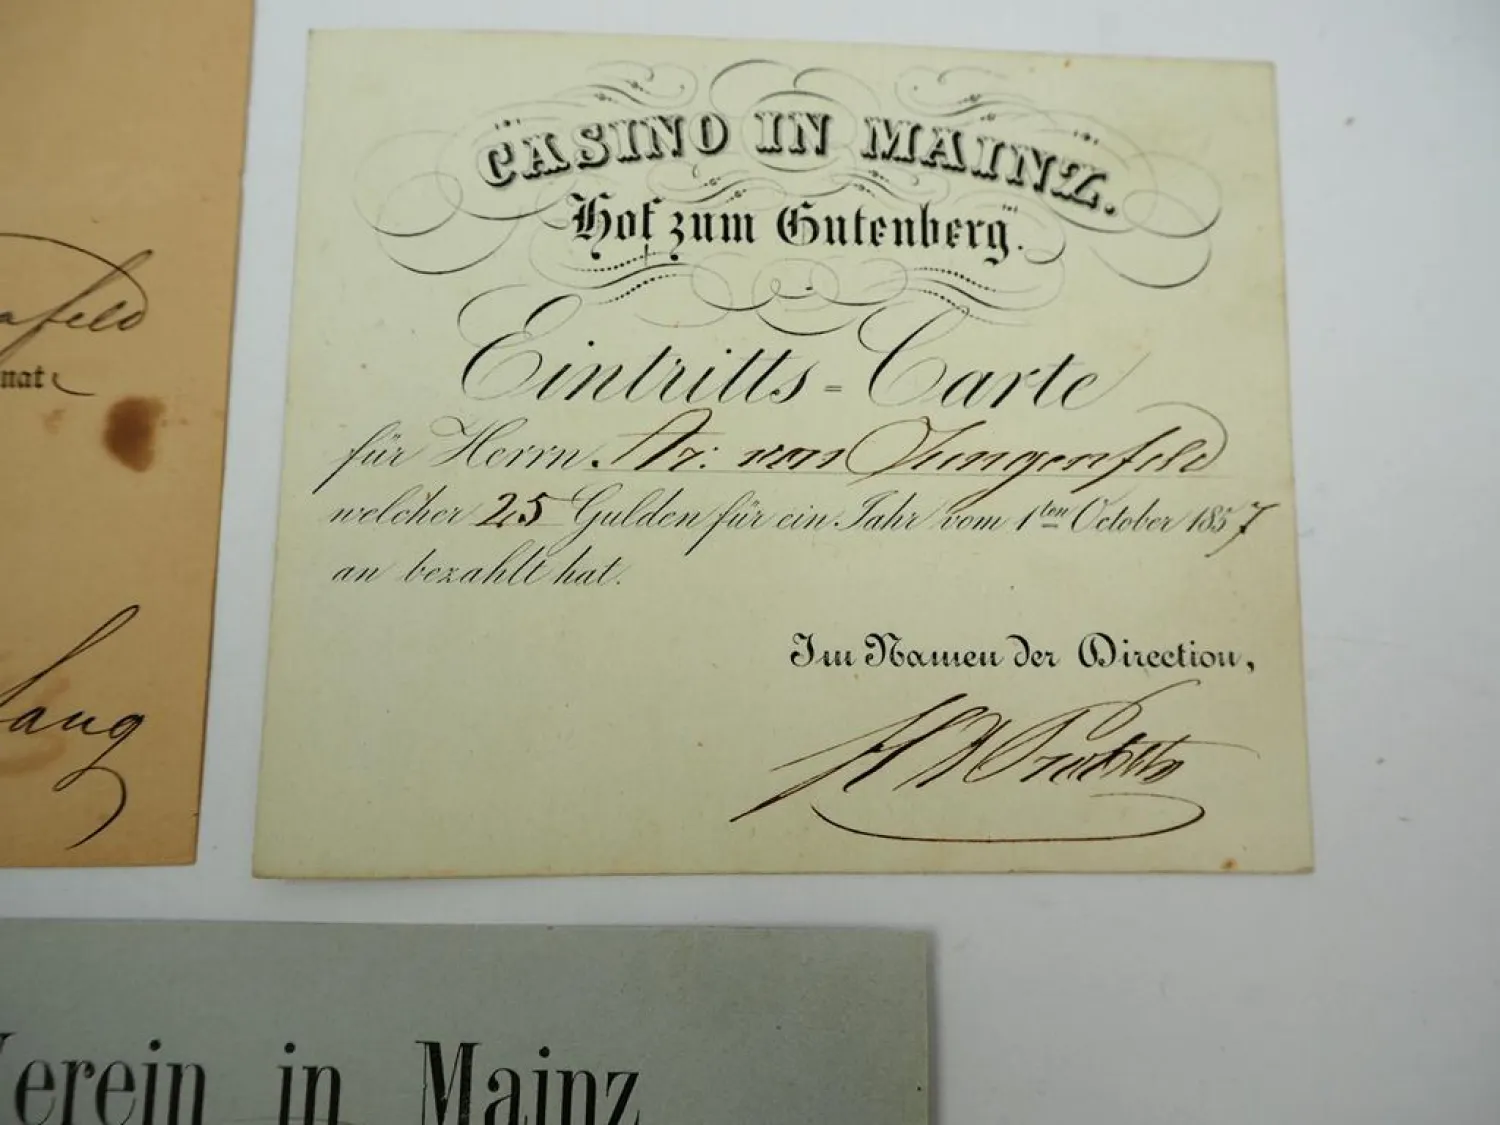 CASINO IN MAINZ.
Hof zum Gutenberg.
Eintritts=Carte
für Herrn Fr: von Jungenfeld
welcher 25 Gulden für ein Jahr vom 1ten October 1857
an bezahlt hat.
Im Namen der Direction,
afeld
nat
Lang
Verein in Mainz